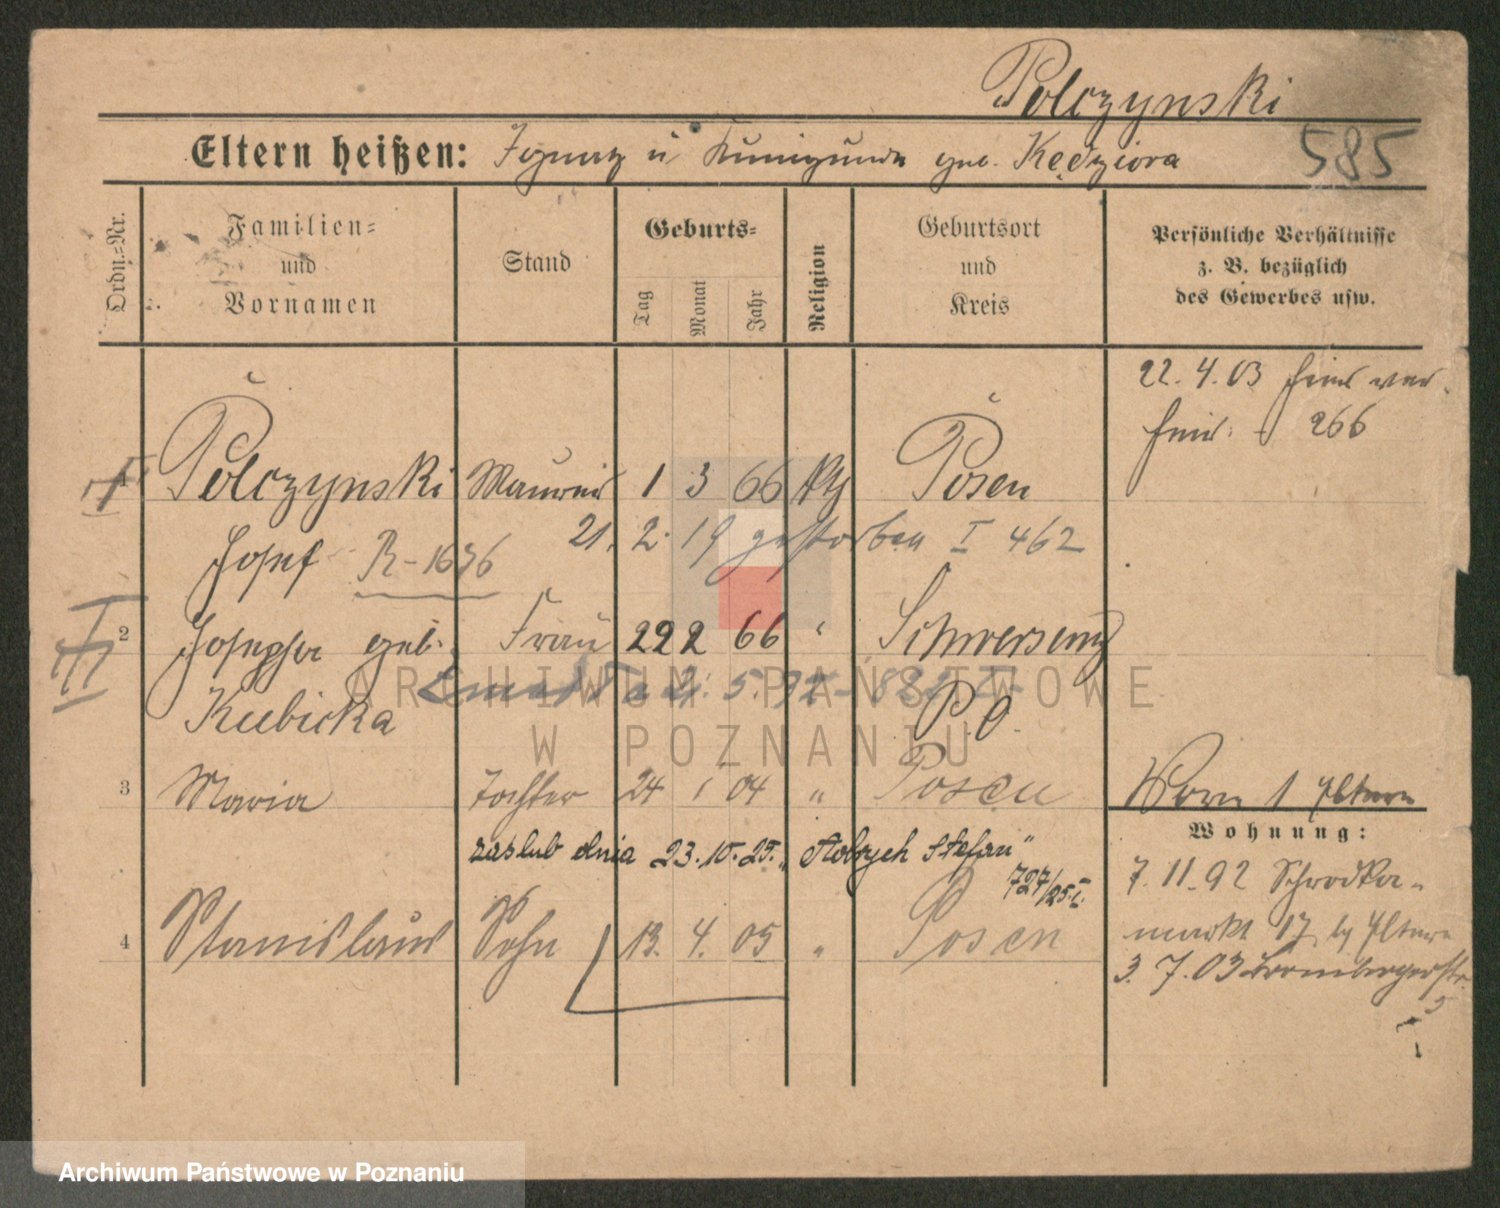 Polczynski
Eltern heißen: Ignatz u Kunigunda geb. Kędziora 585
Ordn.-Nr.
Familien-
und
Vornamen
Stand
Geburts-
Tag
Monat
Jahr
Religion
Geburtsort
und
Kreis
Persönliche Verhältnisse
z. B. bezüglich
des Gewerbes usw.
22. 4. 03
266
1 Polczynski Maurer 1 3 66 kth Posen
21. 2. 19 gestorben I 462
Josef R-1636
2 Josepha geb. Frau 22 2 66 " Schwersenz
Kubicka P. O
3 Maria Tochter 24 1 04 " Posen
1 Eltern
Wohnung:
zaślub dnia 23.10.25. Stefan"
727/25.I.
7. 11. 92 Schrodka-
markt 17 b/ Eltern
4 Stanislaus Sohn 13. 4. 05 " Posen
3. 7. 03 Brombergerstr.
5
ARCHIWUM PAŃSTWOWE
W POZNANIU
Archiwum Państwowe w Poznaniu